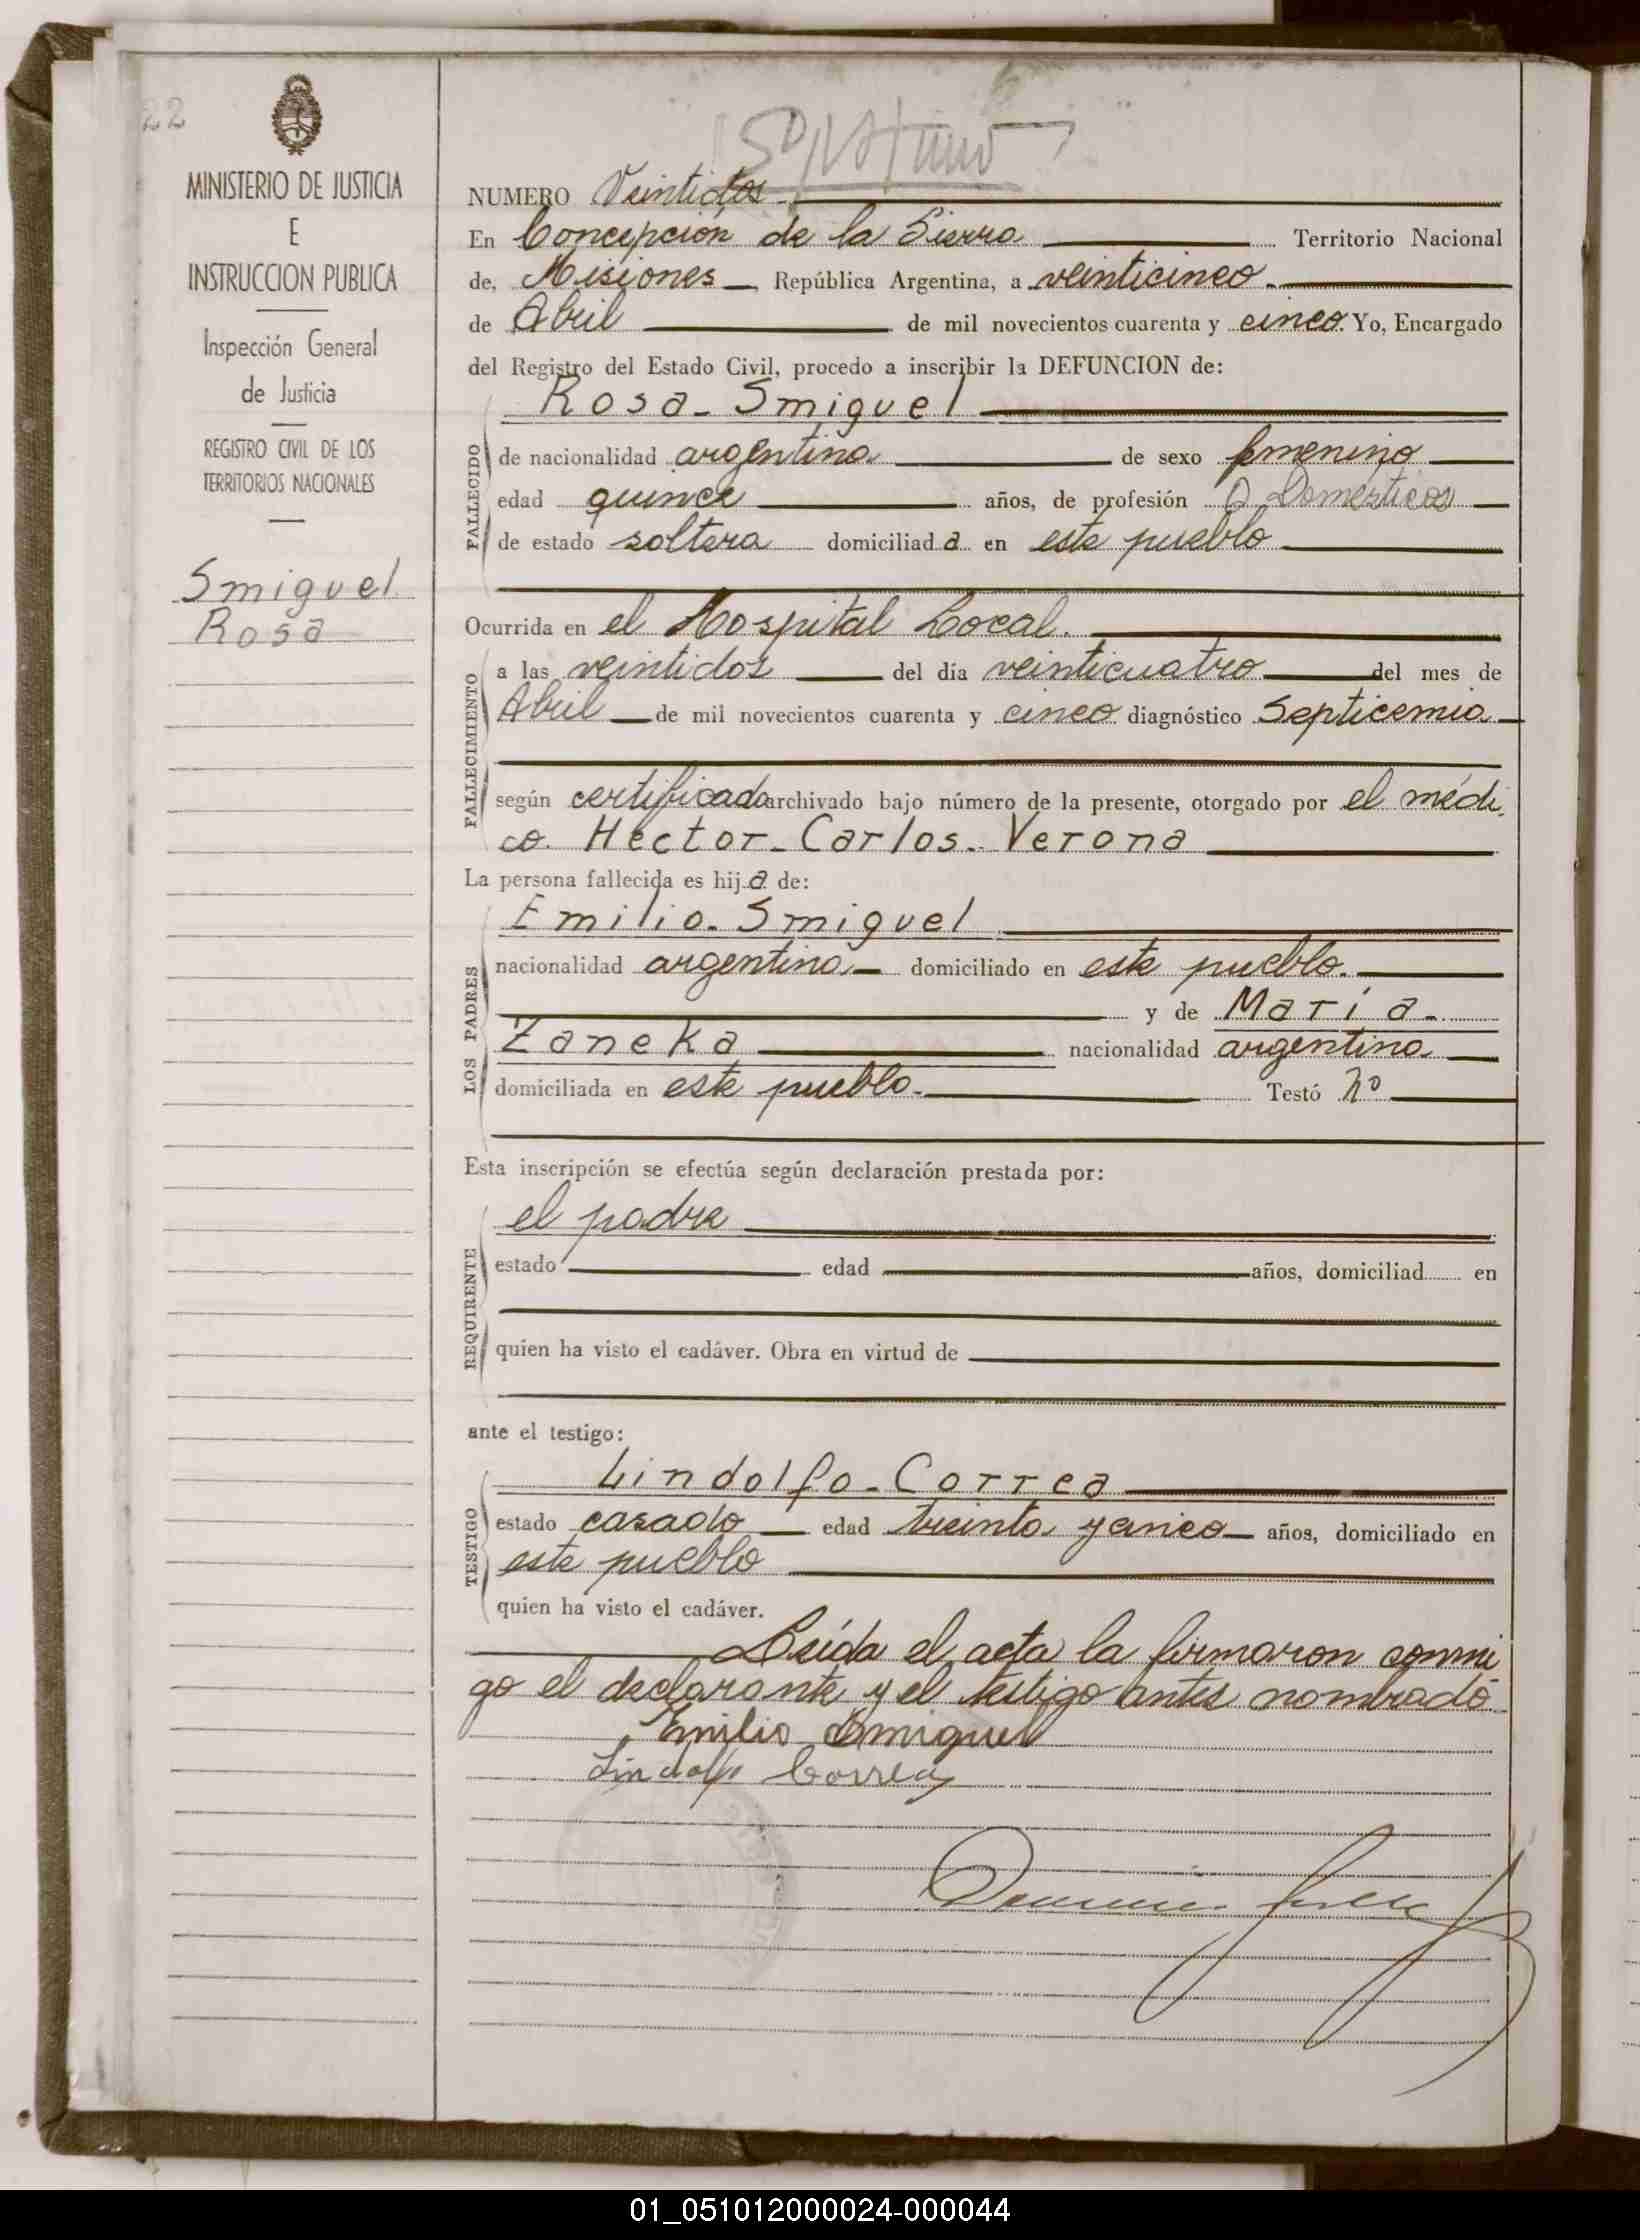 22
MINISTERIO DE JUSTICIA
E
INSTRUCCION PUBLICA
Inspección General
de Justicia
REGISTRO CIVIL DE LOS
TERRITORIOS NACIONALES
Smiguel
Rosa
NUMERO Veintidos
En Concepción de la Sierra Territorio Nacional
de, Misiones, República Argentina, a veinticinco
de Abril de mil novecientos cuarenta y cinco. Yo, Encargado
del Registro del Estado Civil, procedo a inscribir la DEFUNCION de:
Rosa - Smiguel
FALLECIDO
de nacionalidad argentina de sexo femenino
edad quince años, de profesión Q. Domésticos
de estado soltera domiciliada en este pueblo
Ocurrida en el Hospital Local.
FALLECIMIENTO
a las veintidos del día veinticuatro del mes de
Abril de mil novecientos cuarenta y cinco diagnóstico Septicemia
según certificado archivado bajo número de la presente, otorgado por el médi
co. Hector - Carlos - Verona
La persona fallecida es hija de:
Emilio - Smiguel
LOS PADRES
nacionalidad argentina domiciliado en este pueblo.
y de María -
Zaneka nacionalidad argentina
domiciliada en este pueblo. Testó No
Esta inscripción se efectúa según declaración prestada por:
el padre
REQUIRENTE
estado edad años, domiciliad en
quien ha visto el cadáver. Obra en virtud de
ante el testigo:
Lindolfo - Correa
TESTIGO
estado casado edad treinta y cinco años, domiciliado en
este pueblo
quien ha visto el cadáver.
Leída el acta la firmaron conmi
go el declarante y el testigo antes nombrado
Emilio Smiguel
Lindolfo Correa
01_051012000024-000044